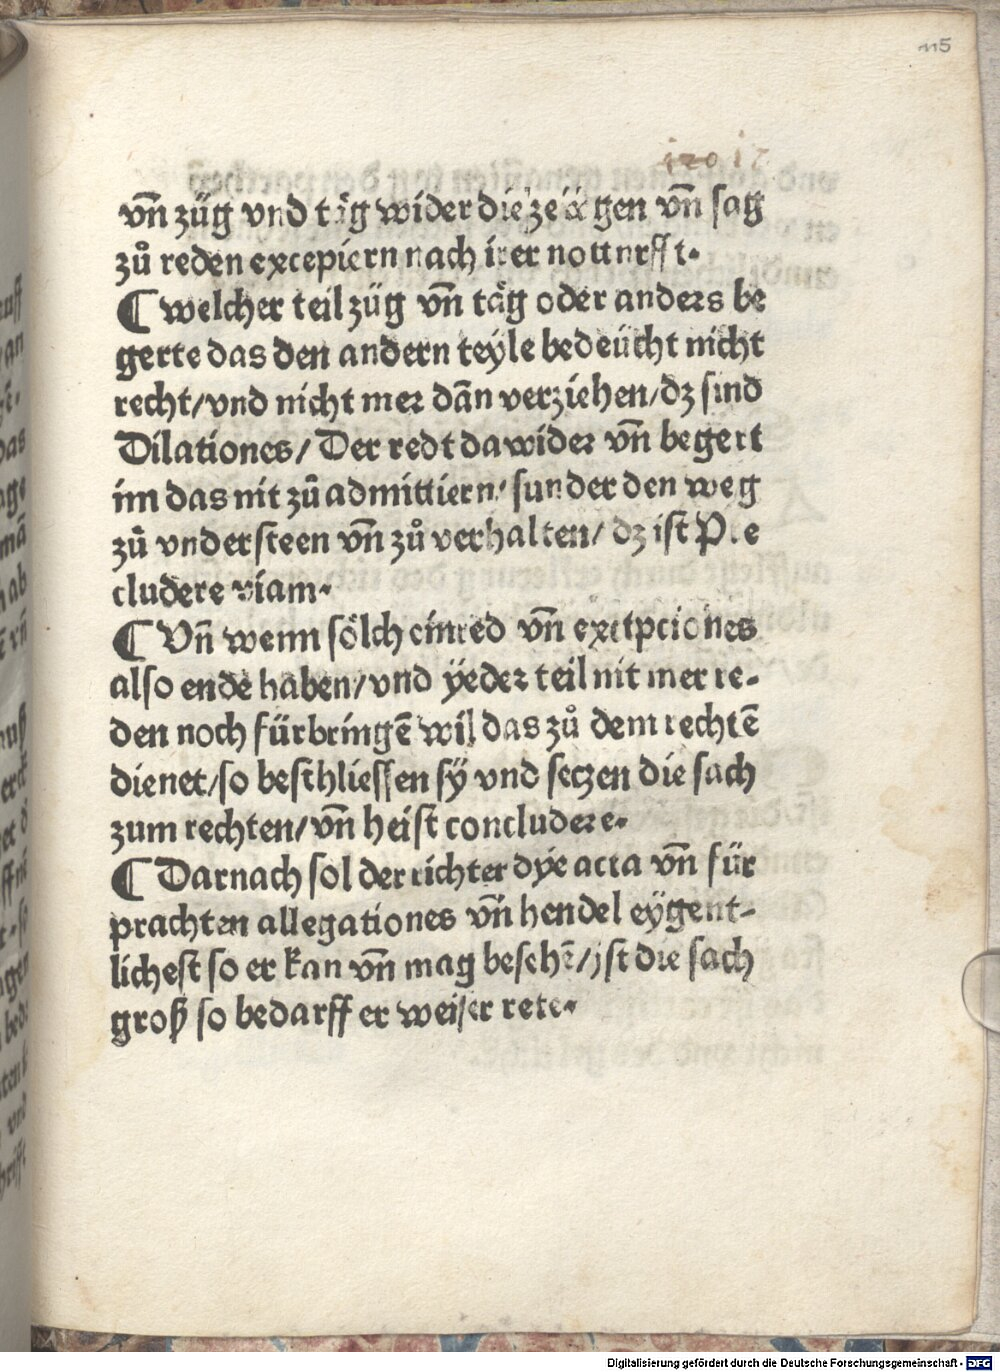 115
vñ züg vnd täg wider die zeügen vñ sag
zů reden excepiern nach irer notturfft.
¶ welcher teil züg vñ täg oder anders be
gerte das den andern teyle bedeücht nicht
recht/vnd nicht mer dañ verziehen/dz sind
Dilationes/ Der redt da wider vñ begert
im das nit zů admittiern/ sunder den weg
zů vndersteen vñ zů verhalten/ dz ist Pre
cludere viam.
¶ Vñ wenn sölch einred vñ exceptpciones
also ende haben/vnd ÿeder teil nit mer re-
den noch fürbringē wil das zů dem rechtē
dienet/so beschliessen sÿ vnd setzen die sach
zum rechten/vñ heist concludere.
¶ Darnach sol der richter dÿe acta vñ für
prachten allegationes vñ hendel eÿgent-
lichest so er kan vñ mag besehē/jst die sach
groß so bedarff er weiser rete.
Digitalisierung gefördert durch die Deutsche Forschungsgemeinschaft - DFG